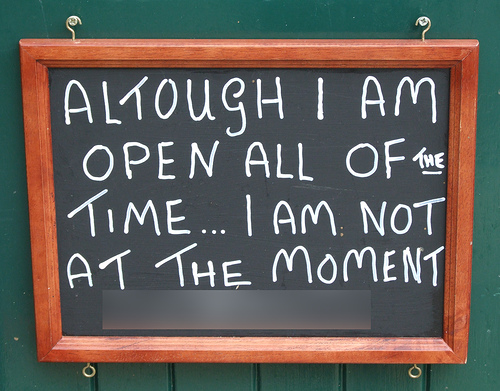 ALTOUGH I AM
OPEN ALL OF THE
TIME... I AM NOT
AT THE MOMENT